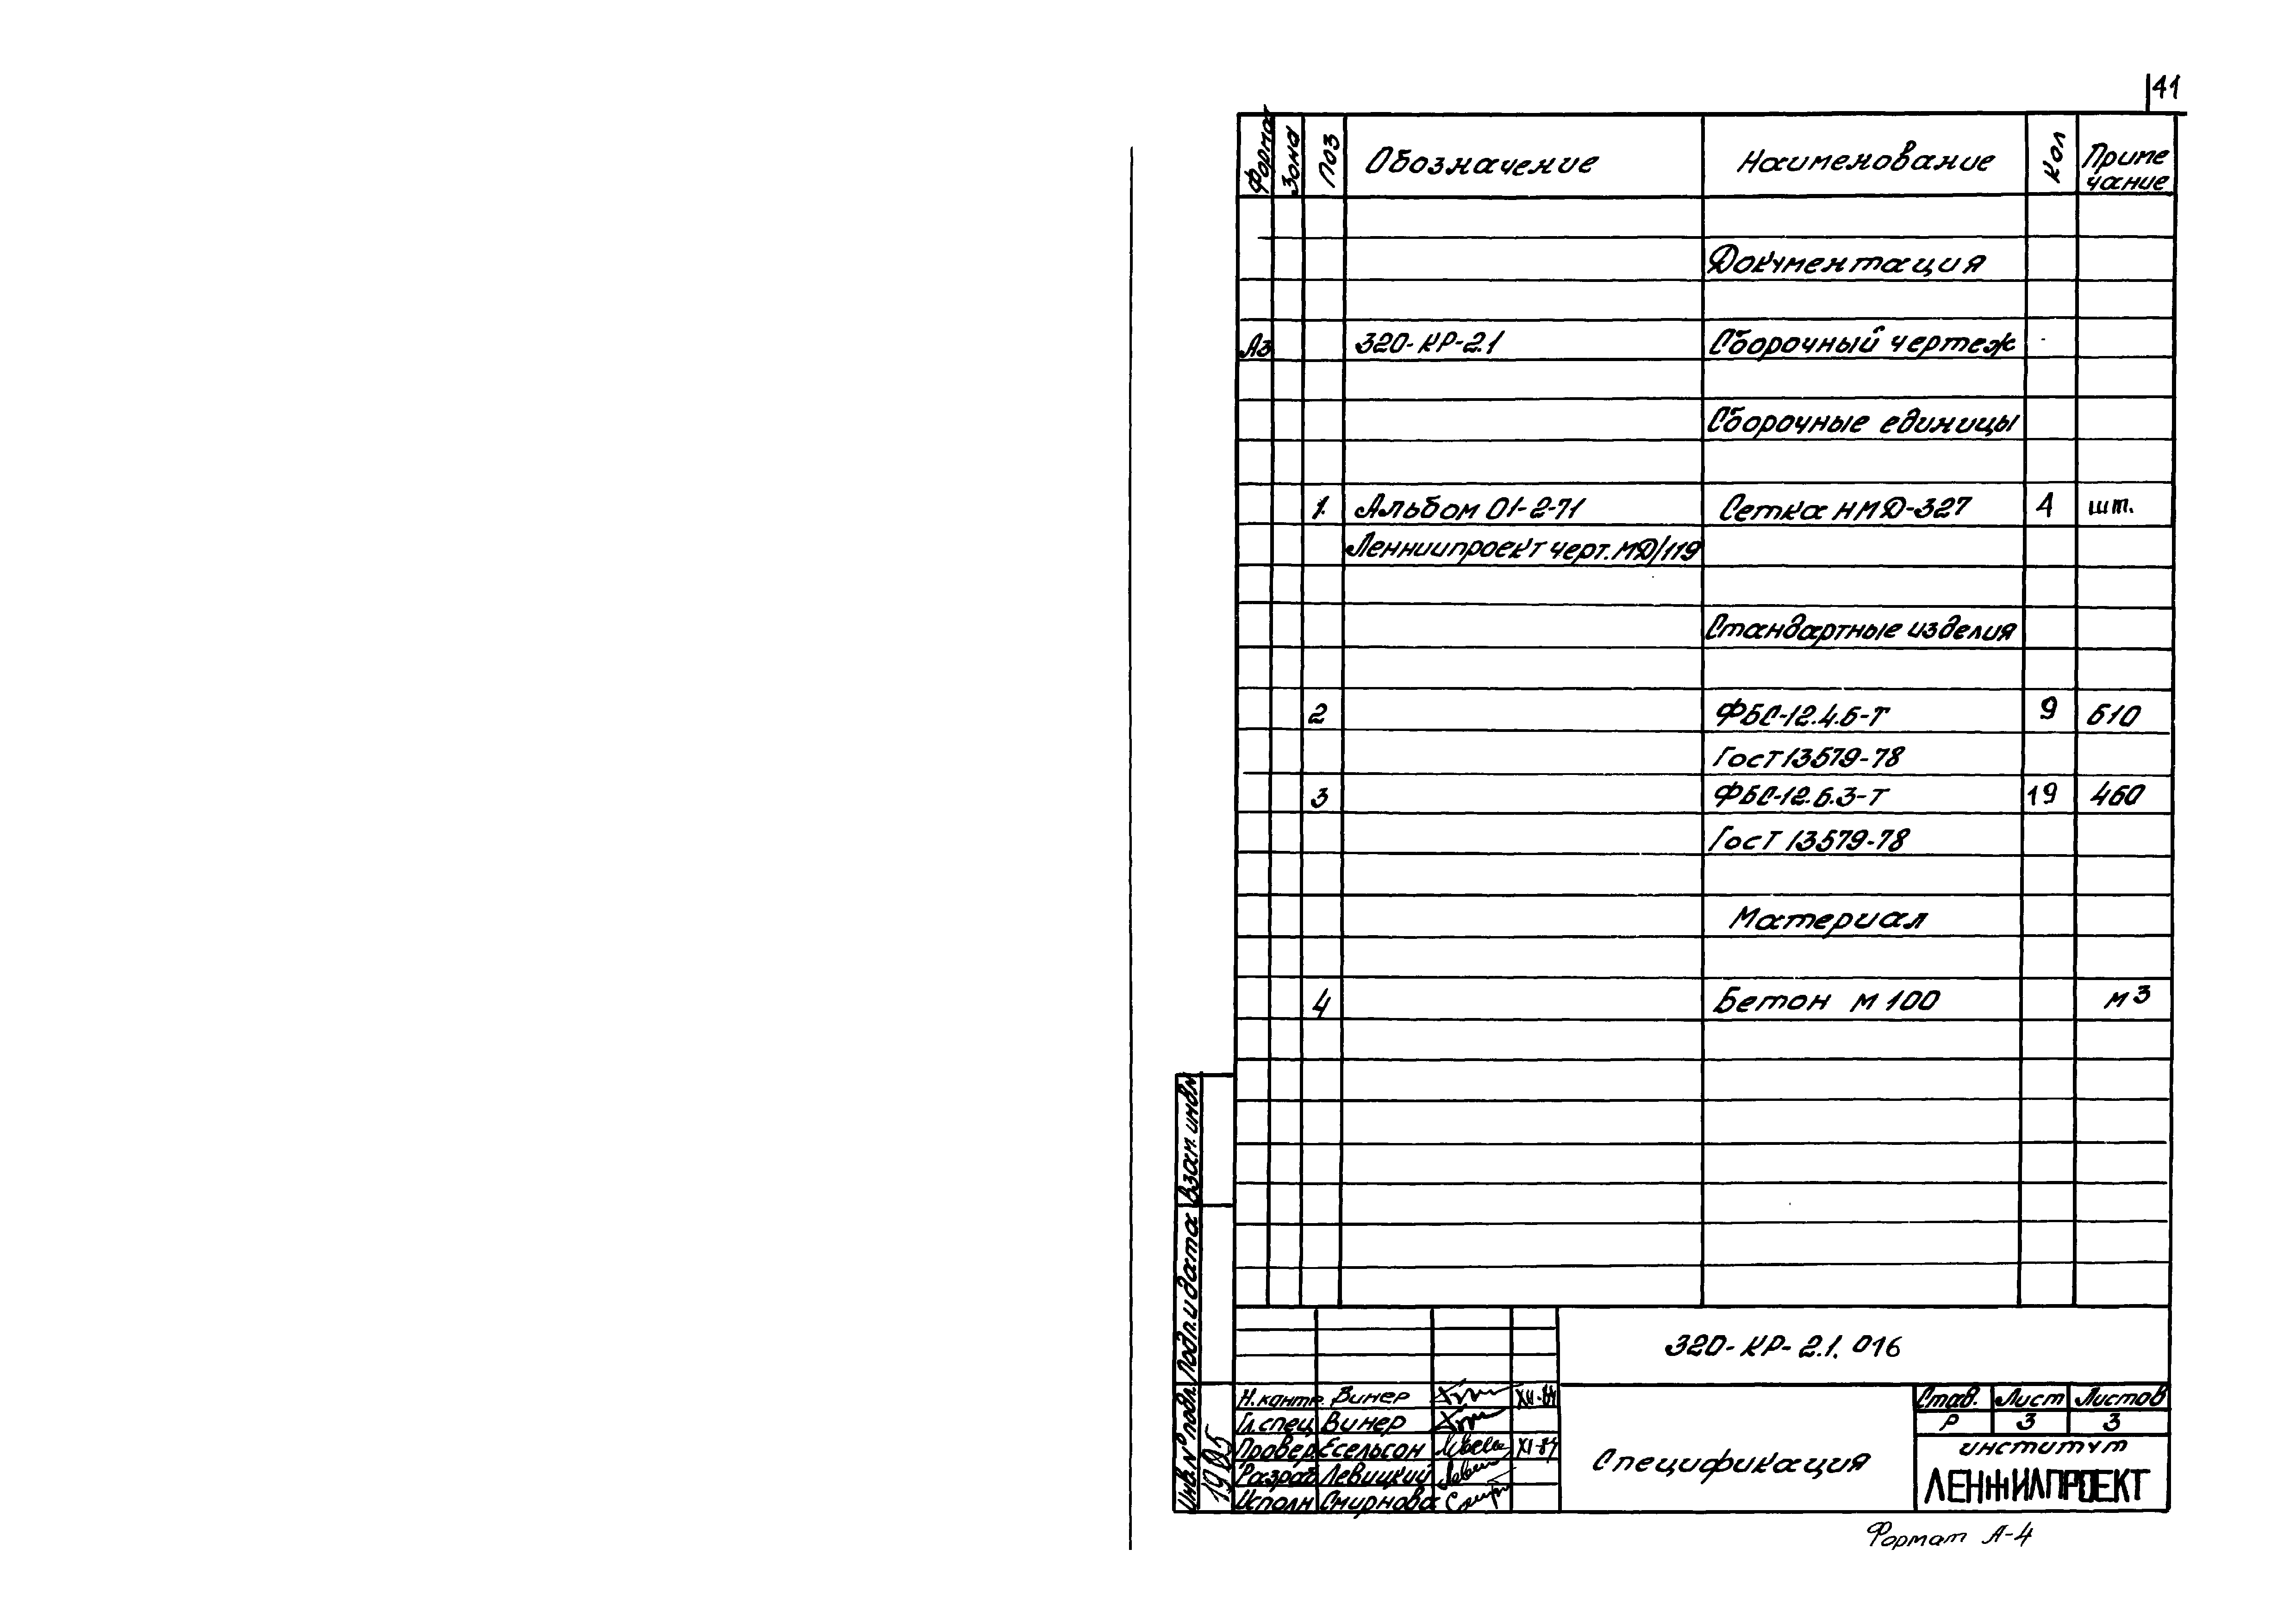 41
Формат Зона Поз Обозначение Наименование Кол Приме чание
Документация
А3 320-КР-2.1 Сборочный чертеж
Сборочные единицы
1. Альбом 01-2-71 Сетка НМД-327 4 шт.
Ленниипроект черт. МД/119
Стандартные изделия
2 ФБС-12.4.6-Т 9 610
Гост 13579-78
3 ФБС-12.6.3-Т 19 460
Гост 13579-78
Материал
4 Бетон М 100 м3
Взам. инв.№
Подп. и дата
Инв. № подл.
1905
320-КР-2.1. 016
Н. контр. Винер XII-84
Гл. спец Винер
Провер Есельсон XI-84
Разраб Левицкий
Исполн Смирнова
Спецификация
Стад. Лист Листов
Р 3 3
институт
ЛЕННИИПРОЕКТ
Формат А-4